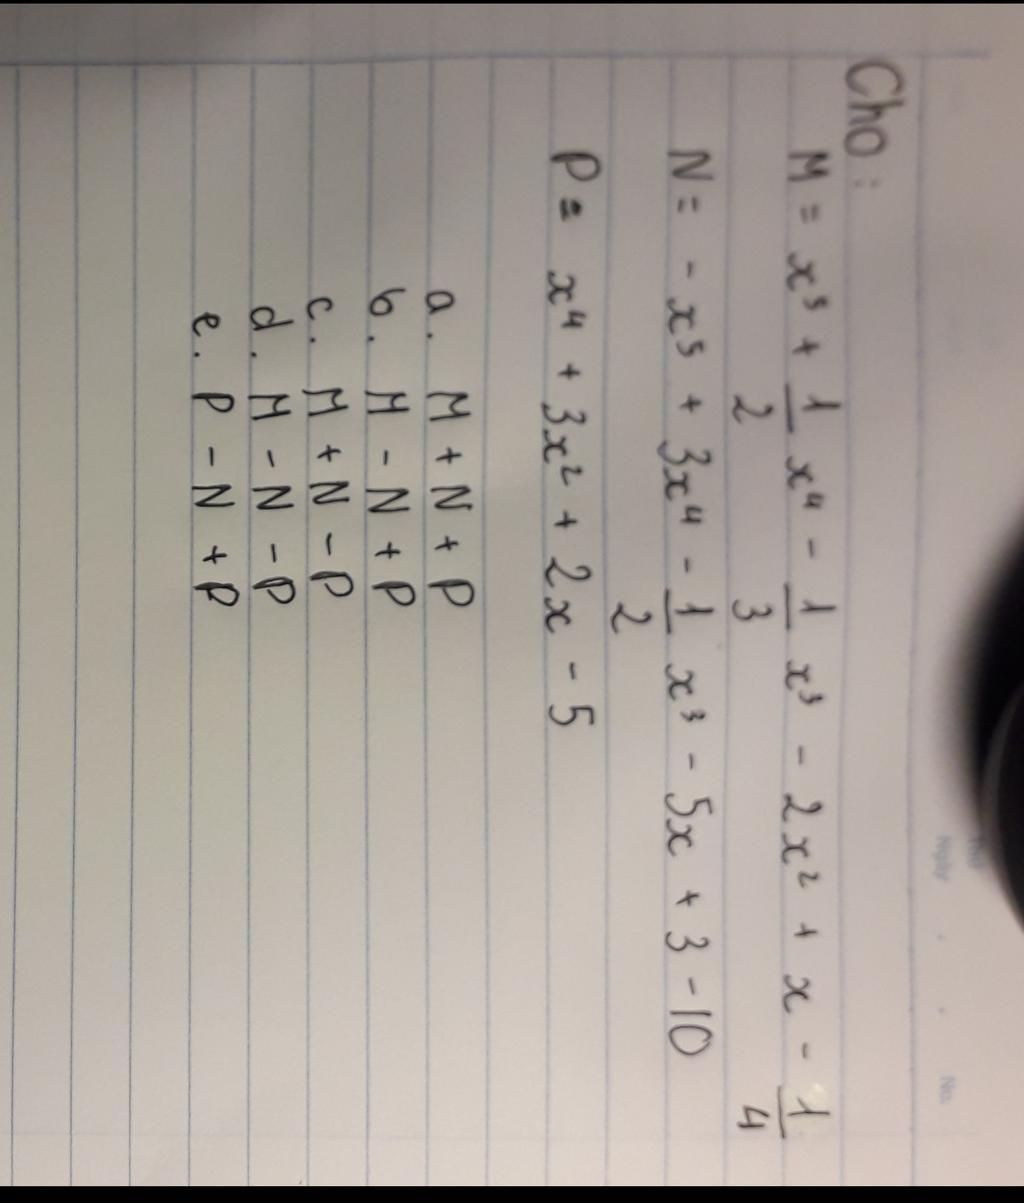 Cho:
M = x⁵ + 1/2 x⁴ - 1/3 x³ - 2x² + x - 1/4
N = - x⁵ + 3x⁴ - 1/2 x³ - 5x + 3 - 10
P = x⁴ + 3x² + 2x - 5
a. M + N + P
b. M - N + P
c. M + N - P
d. M - N - P
e. P - N + P
No.